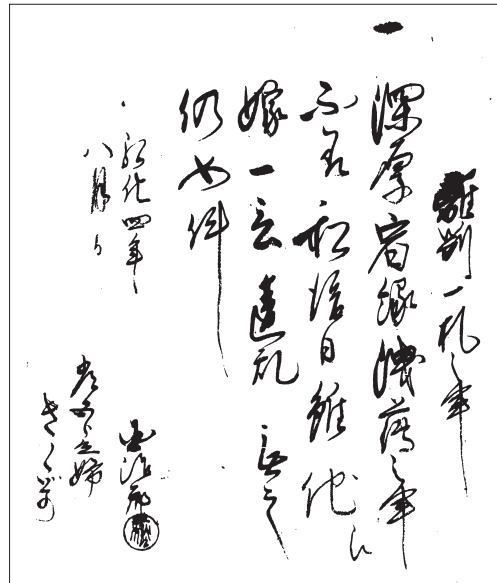 離別一札之事
一
深厚宿縁洩薄之事
不有私後日雖他江
嫁一言違乱無之
仍如件
弘化四年
八月日
国治郎
きく